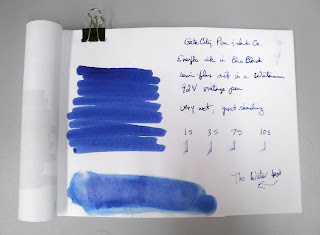 Gate City Pen & Ink Co.
Everflo ink in Blue Black
semi-flex nib in a Waterman
92V vintage pen
very wet, great shading
1s 3s 7s 10s
The Water test